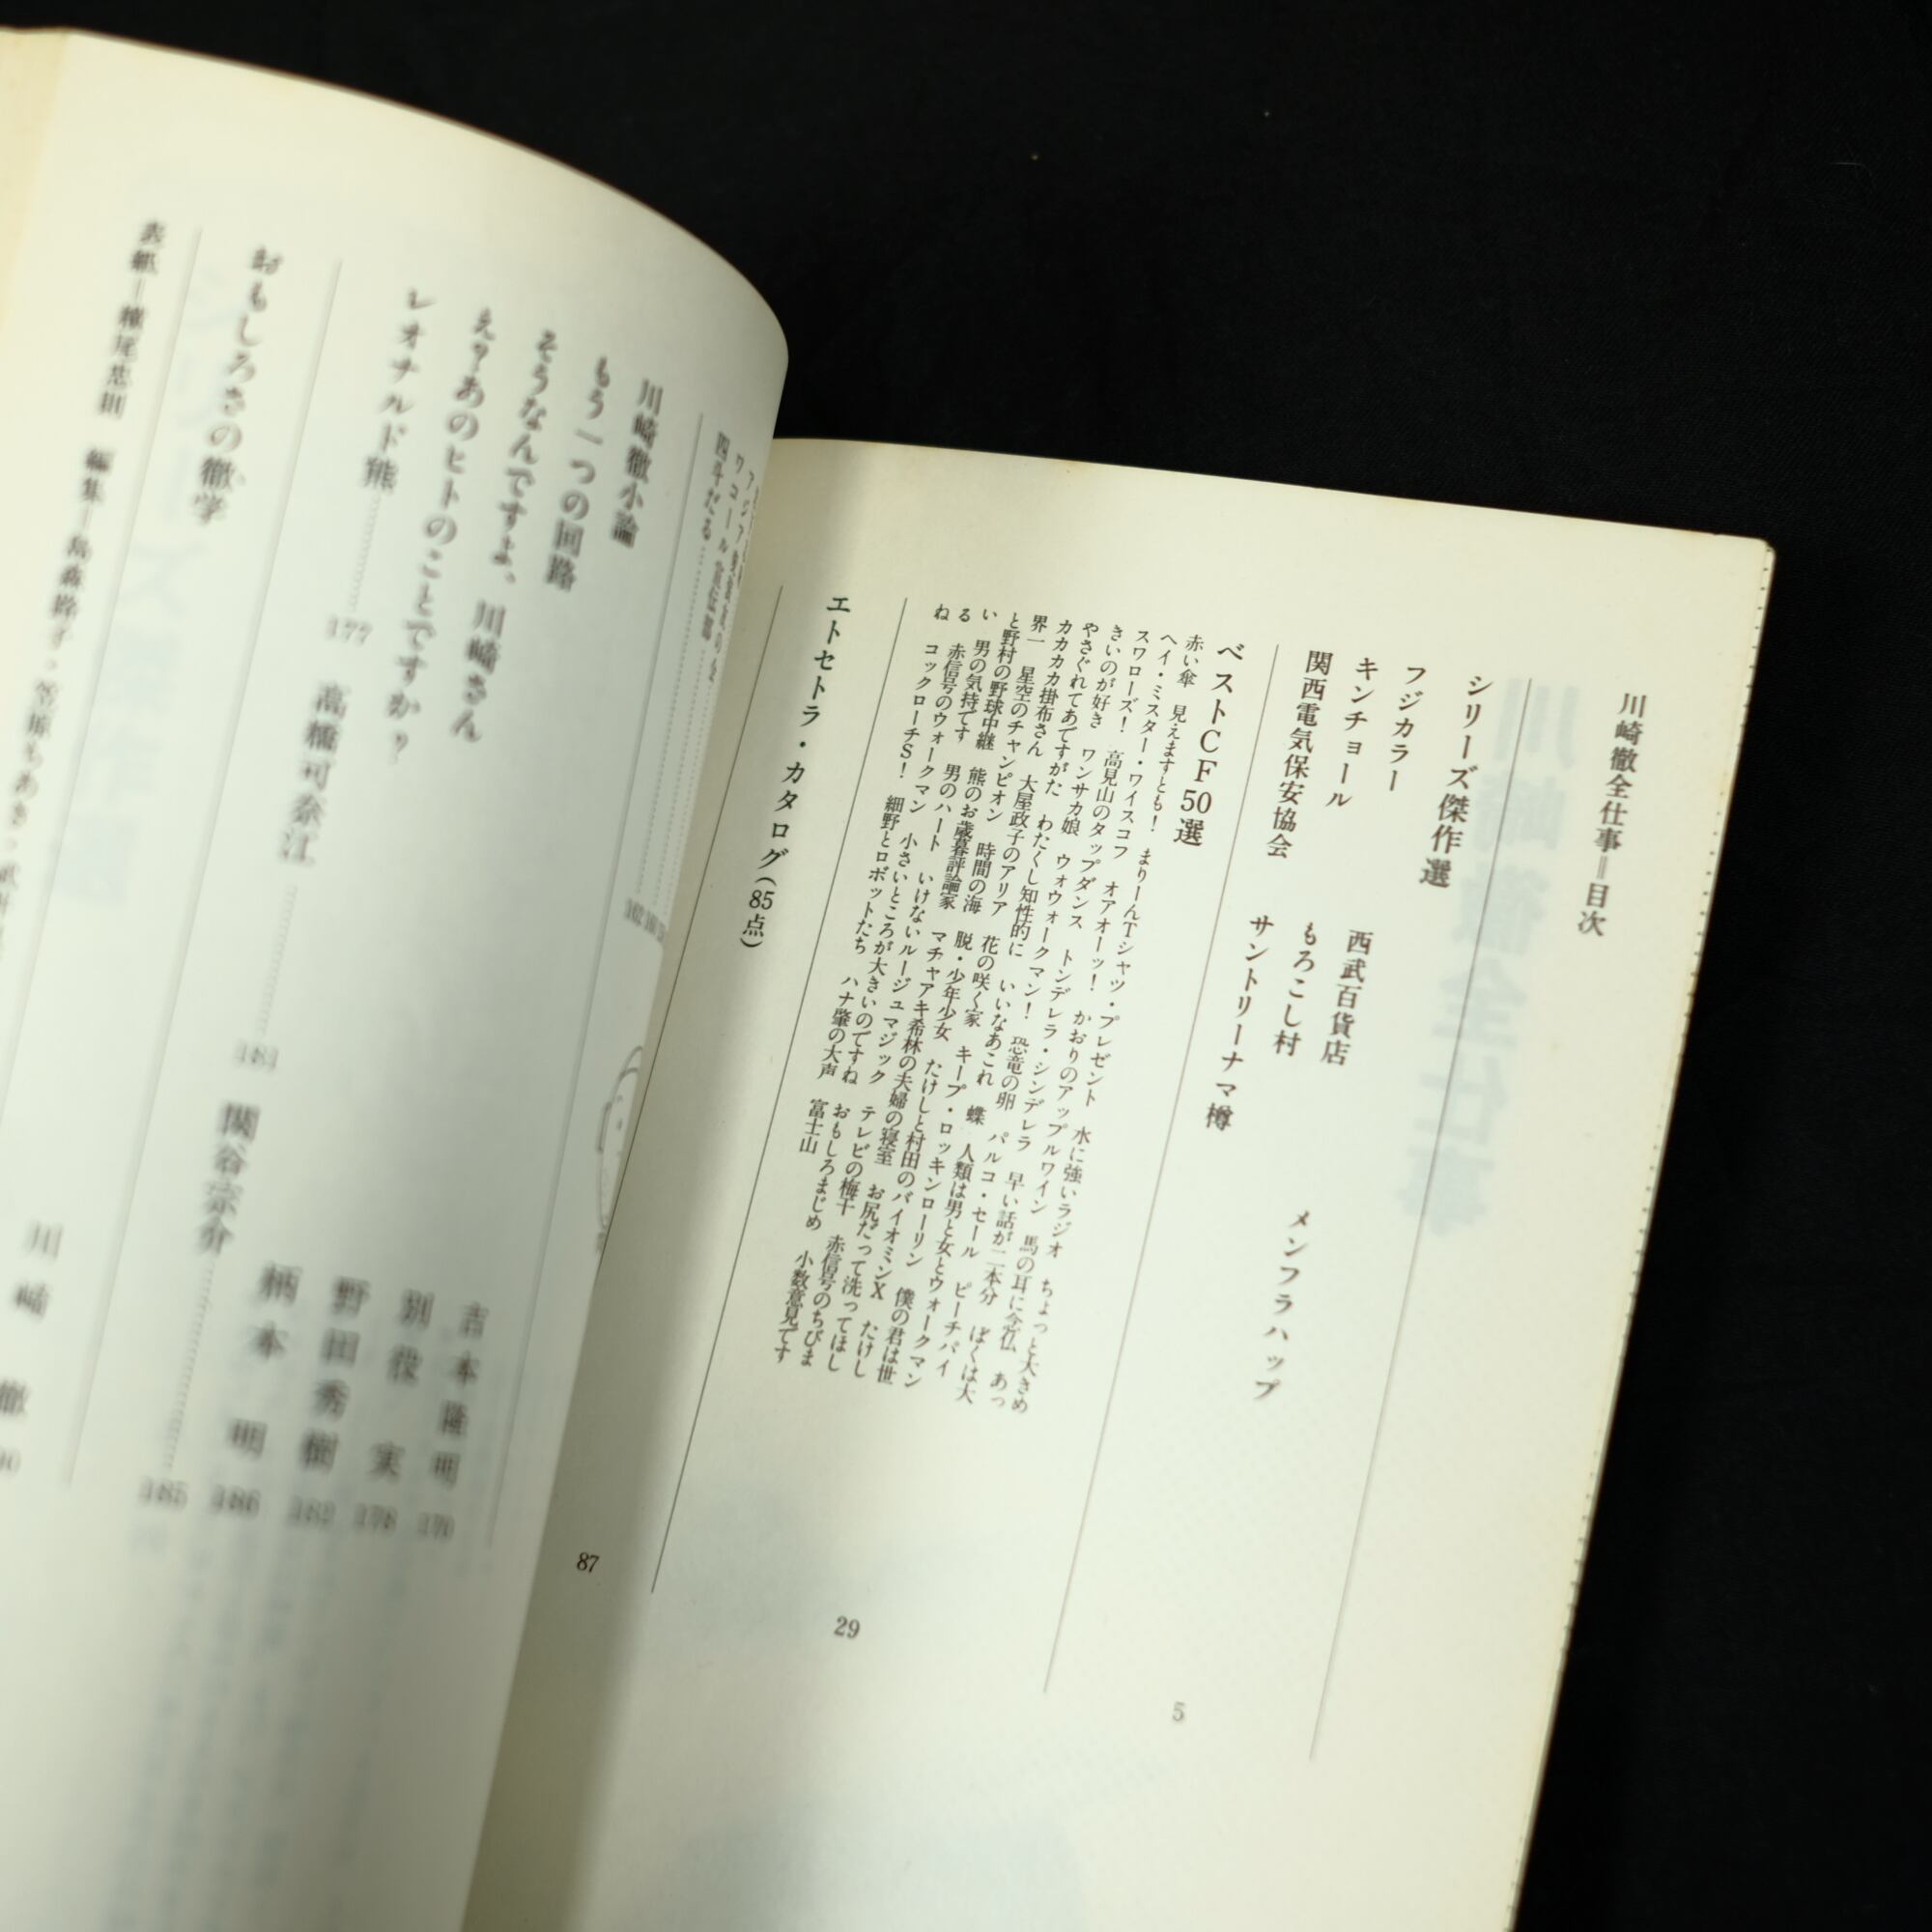 川崎徹全仕事＝目次
シリーズ傑作選
フジカラー
キンチョール
関西電気保安協会
西武百貨店
もろこし村
サントリーナマ樽
メンフラハップ
5
ベストCF50選
赤い傘　見えますとも！　まりーんTシャツ・プレゼント　水に強いラジオ　ちょっと大きめ
ヘイ・ミスター・ワイスコフ　オアオーッ！　かおりのアップルワイン　馬の耳に念仏　あっ
スワローズ！　高見山のタップダンス　トンデレラ・シンデレラ　早い話が二本分　ぼくは大
きいのが好き　ワンサカ娘　ウォウォークマン！　恐竜の卵　パルコ・セール　ピーチパイ
やさぐれてあですがた　わたくし知性的に　いいなあこれ　蝶　人類は男と女とウォークマン
カカカカ掛布さん　大屋政子のアリア　花の咲く家　キープ・ロッキンローリン　僕の君は世
界一　星空のチャンピオン　時間の海　脱・少年少女　たけしと村田のバイオミンX　たけし
と野村の野球中継　熊のお歳暮評論家　マチャアキ希林の夫婦の寝室　お尻だって洗ってほし
い　男の気持てす　男のハート　いけないルージュマジック　テレビの梅干　赤信号のちびま
る　赤信号のウォークマン　小さいところが大きいのですね　おもしろまじめ　小数意見てす
ね　コックローチS！　細野とロボットたち　ハナ肇の大声　富士山
29
エトセトラ・カタログ（85点）
87
ワコール宣伝部
四斗だる
川崎徹小論
もう一つの回路
吉本隆明
170
そうなんですよ、川崎さん
別役　実
え？あのヒトのことですか？
野田秀樹
レオナルド熊
177
高橋可奈江
関谷宗介
185
柄本　明
186
おもしろさの徹学
川崎　徹